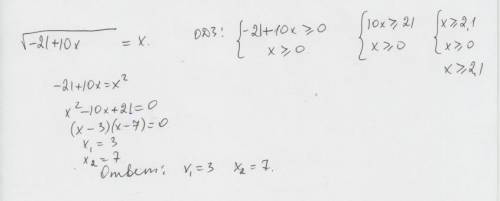 √-21+10x = x. ОДЗ: { -21+10x ≥ 0 { 10x ≥ 21 { x ≥ 2,1
x ≥ 0 x ≥ 0 x ≥ 0
x ≥ 2,1
-21+10x = x²
x²-10x+21=0
(x-3)(x-7)=0
x₁ = 3
x₂ = 7
Ответ: x₁=3 x₂=7.